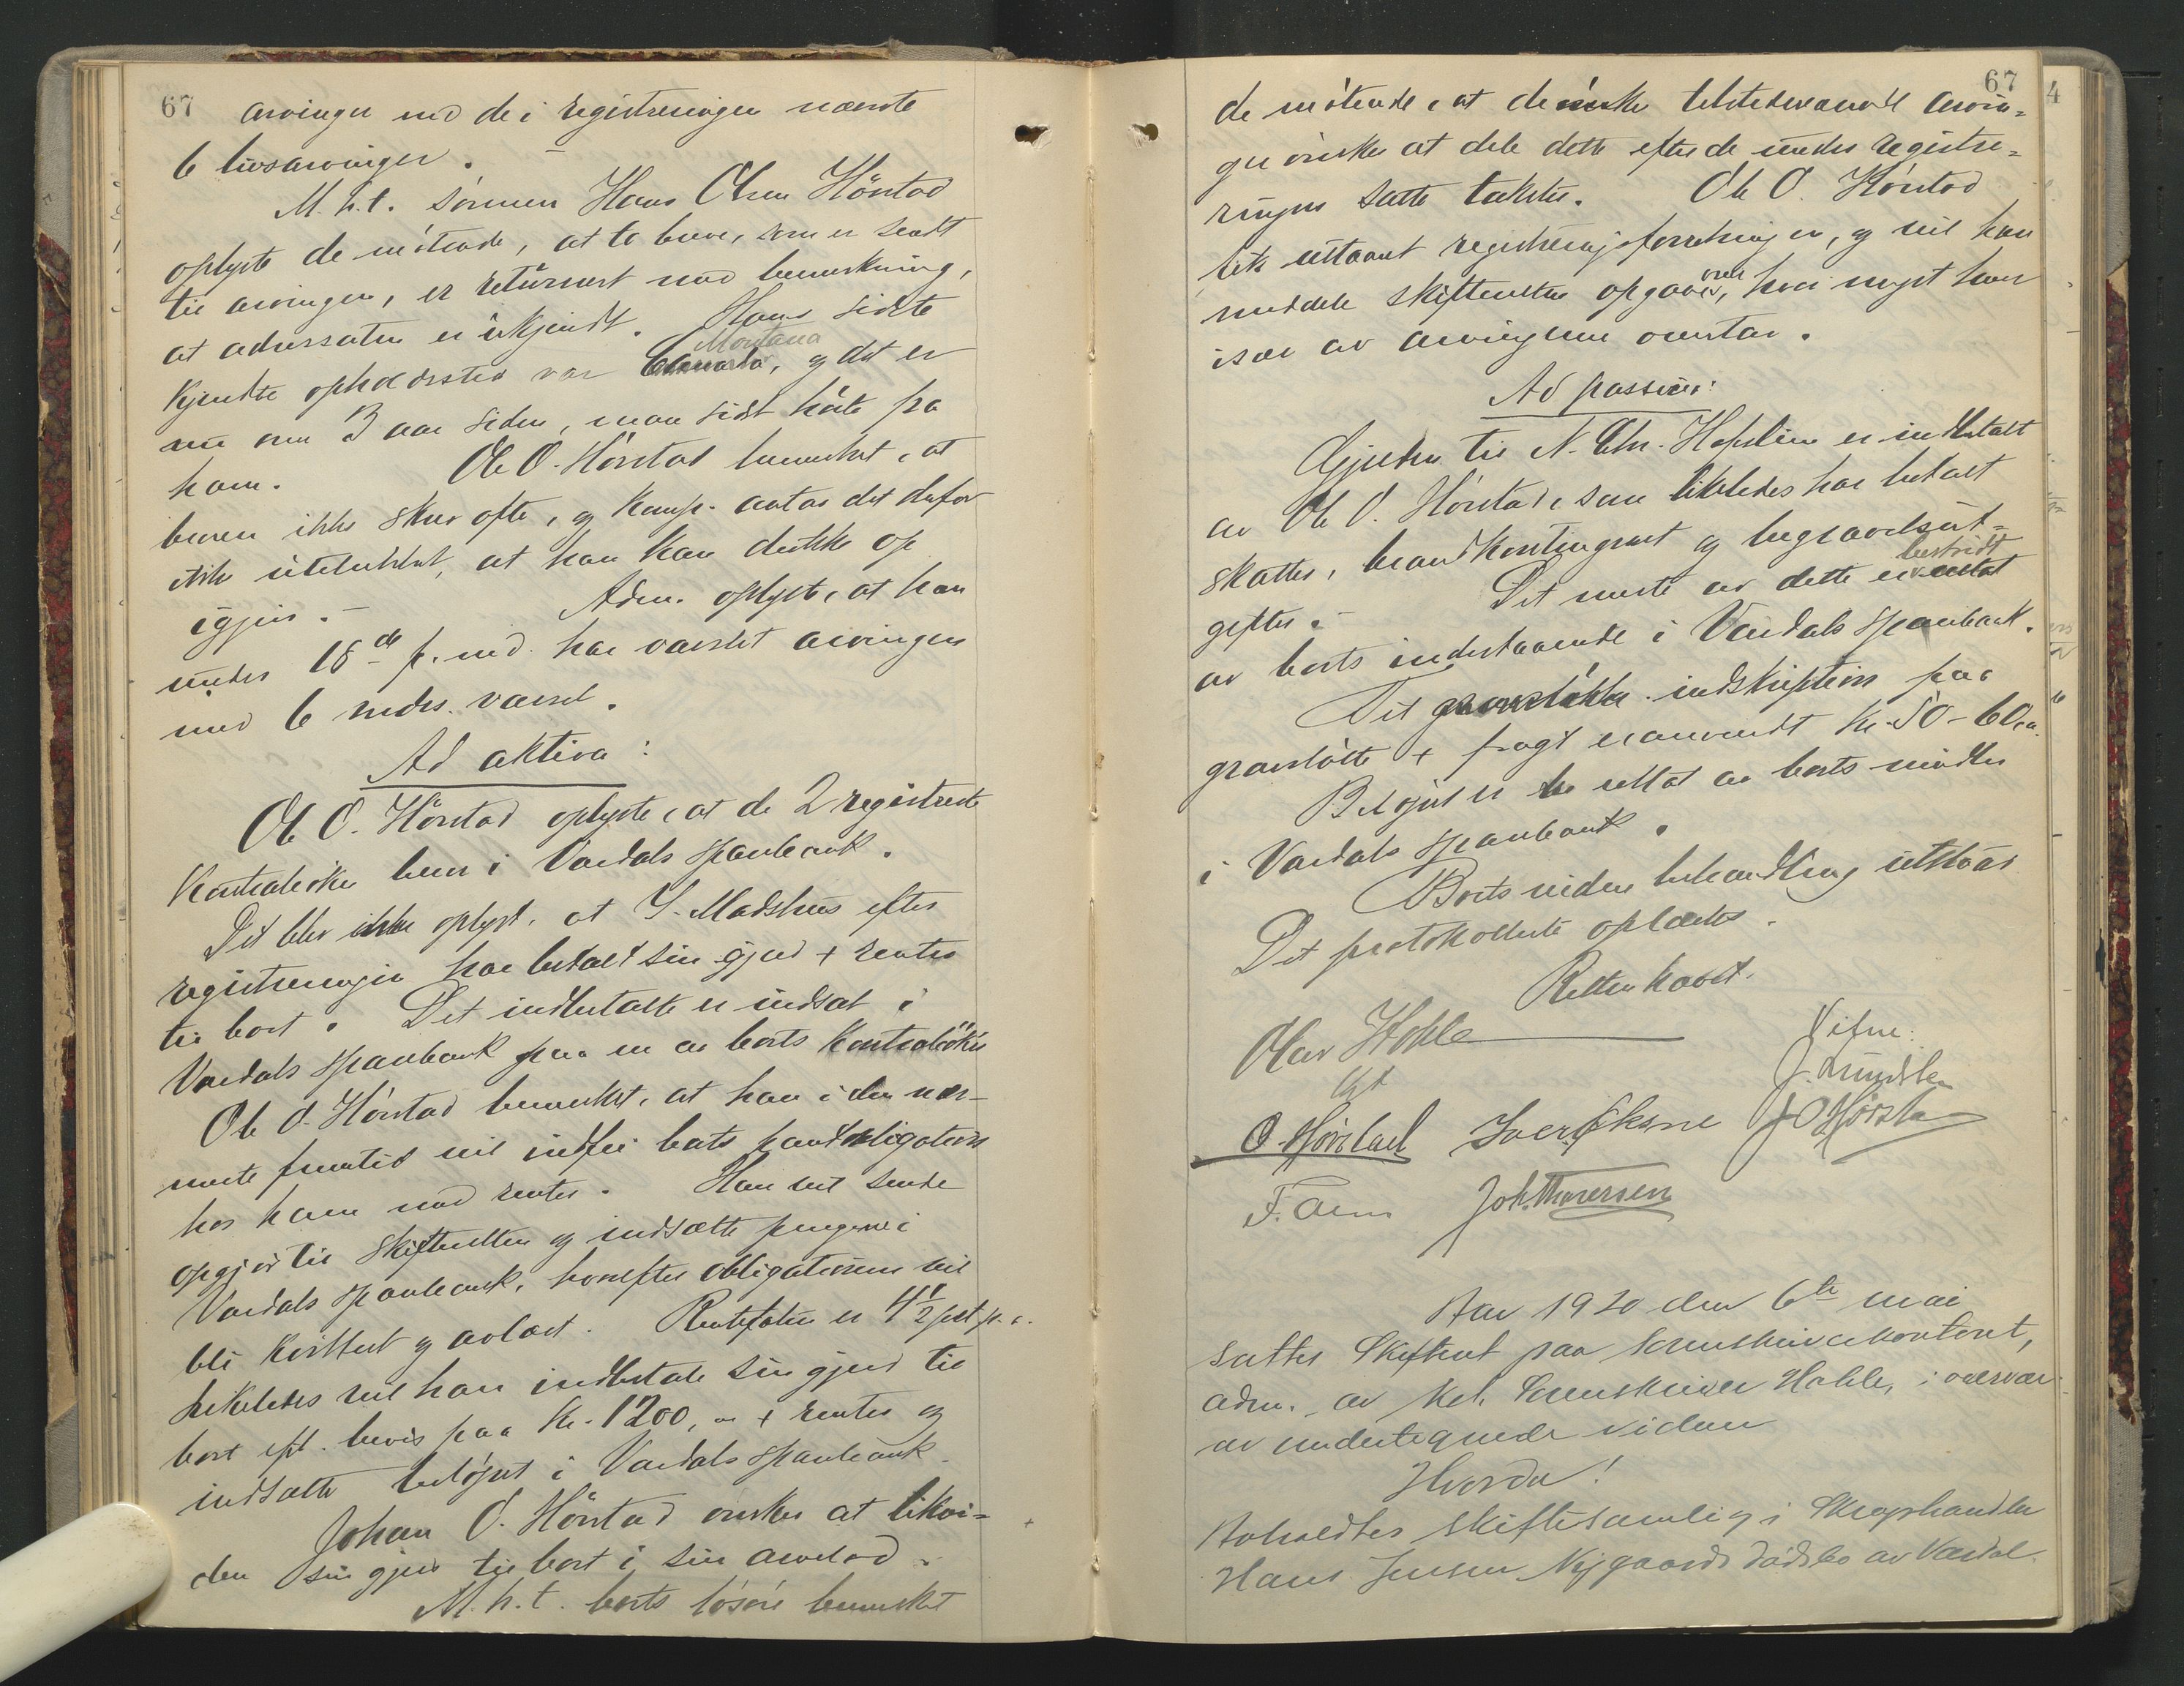 67
arvinger med de i registreringen nævnte
6 livsarvinger. –
M.h.t. sønnen Hans Olsen Hörstad
oplyste de møtende, at to breve, som er sendt
til arvingen, er returnert med bemerkning,
at adressaten er ukjendt. Hans sidste
Montana
kjendte opholdssted var Canada, og det er
nu om 3 aar siden, man sidst hørte fra
ham. Ole O. Hörstad bemerket, at
broren ikke skrev ofte, og komp. antar det derfor
ikke utelukket, at han kan dukke op
igjen. – Adm. oplyste, at han
under 18de f. md. har varslet arvingen
med 6 mdrs. varsel.
Ad aktiva:
Ole O. Hörstad oplyste, at de 2 registrerte
kontrabøker beror i Vardals sparebank.
Det blev ikke oplyst, at S. Madshus efter
registreringen har betalt sin gjæld + renter
til boet. Det indbetalte er indsat i
Vardals sparebank paa en av boets kontrabøker
Ole O. Hörstad bemerket, at han i den nær-
meste fremtid vil indfri boets pantobligation
hos ham med renter. Han vil sende
opgjør til skifteretten og indsætte pengene i
Vardals sparebank, hvorefter obligationen vil
bli kvittert og avlæst. Rentefoten er 4½ pct. p.a.
Likeledes vil han indbetale sin gjæld til
boet eft. bevis paa kr. 1200,- + renter og
indsætte beløpet i Vardals sparebank.
Johan O. Hörstad ønsker at likvi-
dere sin gjæld til boet i sin arvelod.
M.h.t. boets løsøre bemerket
67
4
de møtende, at de tilstedeværende arvin-
ger ønsker at dele dette efter de under registre-
ringen satte takster. Ole O. Hörstad
fik uttaant registreringsforretningen, og vil han
meddele skifteretten opgave over, hvad noget hver
især av arvingene overtar.
Ad passiva:
Gjælden til N. Chr. Hopslien er indbetalt
av Ole O. Hörstad, som likeledes har betalt
skatter, brandkontingent og begravelsesut-
bestridt
gifter. – Det meste av dette er
av boets indestaaende i Vardals sparebank.
Til indskription paa
gravstøtte + fragt er anvendt kr. 50-60,-
Beløpet er uttat av boets midler
i Vardals sparebank.
Boets videre behandling utstaar.
Det protokollerte oplæstes.
Retten hævet.
Olav Hohle
kst
Vitne:
J. Lundsten
O. Hörstad Iver Eksne J O Hörstad
F. Aam Joh. Thoresen
Aar 1920 den 6te mai
sattes Skifteret paa Sorenskriverkontoret,
adm. av kst. Sorenskriver Hohle, i overvær
av undertegnede vidner
Hvorda!
Avholdtes skiftesamling i Skraphandler
Hans Jensen Nygaards dødsbo av Vardal.